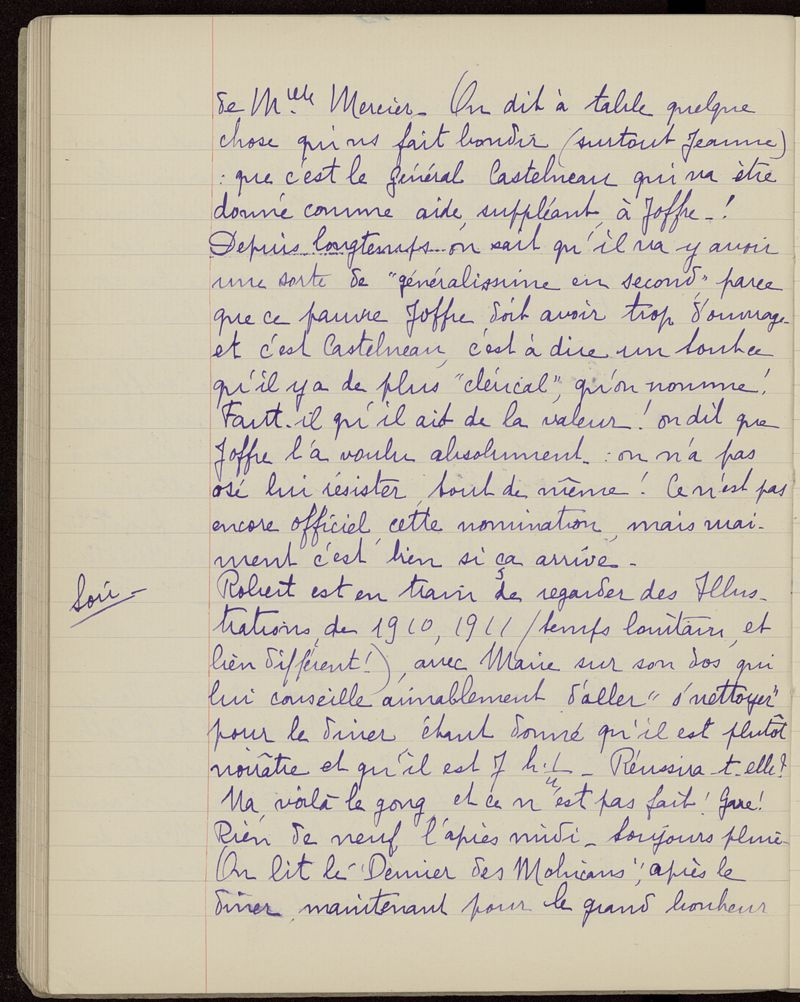 de M.elle Mercier_ On dit à table quelque
chose qui ns fait bondir (surtout Jeanne)
: que c'est le Général Castelneau qui va être
donné comme aide, suppléant, à Joffre_!
Depuis longtemps on sait qu'il va y avoir
une sorte de "généralissime en second" parce
que ce pauvre Joffre doit avoir trop d'ouvrage_
et c'est Castelneau, c'est à dire un tout ce
qu'il y a de plus "clérical", qu'on nomme!
Faut-il qu'il ait de la valeur! on dit que
Joffre l'a voulu absolument_: on n'a pas
osé lui résister, tout de même! Ce n'est pas
encore officiel, cette nomination, mais vrai-
ment c'est bien si ça arrive_
Soir_
Robert est en train de regarder des Illus-
trations, de 1910, 1911 (temps lointain, et
bien différent!), avec Marie sur son dos qui
lui conseille aimablement d'aller "s'nettoyer"
pour le dîner étant donné qu'il est plutôt
noirâtre et qu'il est 7 h. 1/4_ Réussira-t-elle?
Na, voilà le gong, et ce n'est pas fait! Gare!
Rien de neuf l'après midi_ toujours pluie_
On lit le "Dernier des Mohicans", après le
dîner, maintenant pour le grand bonheur